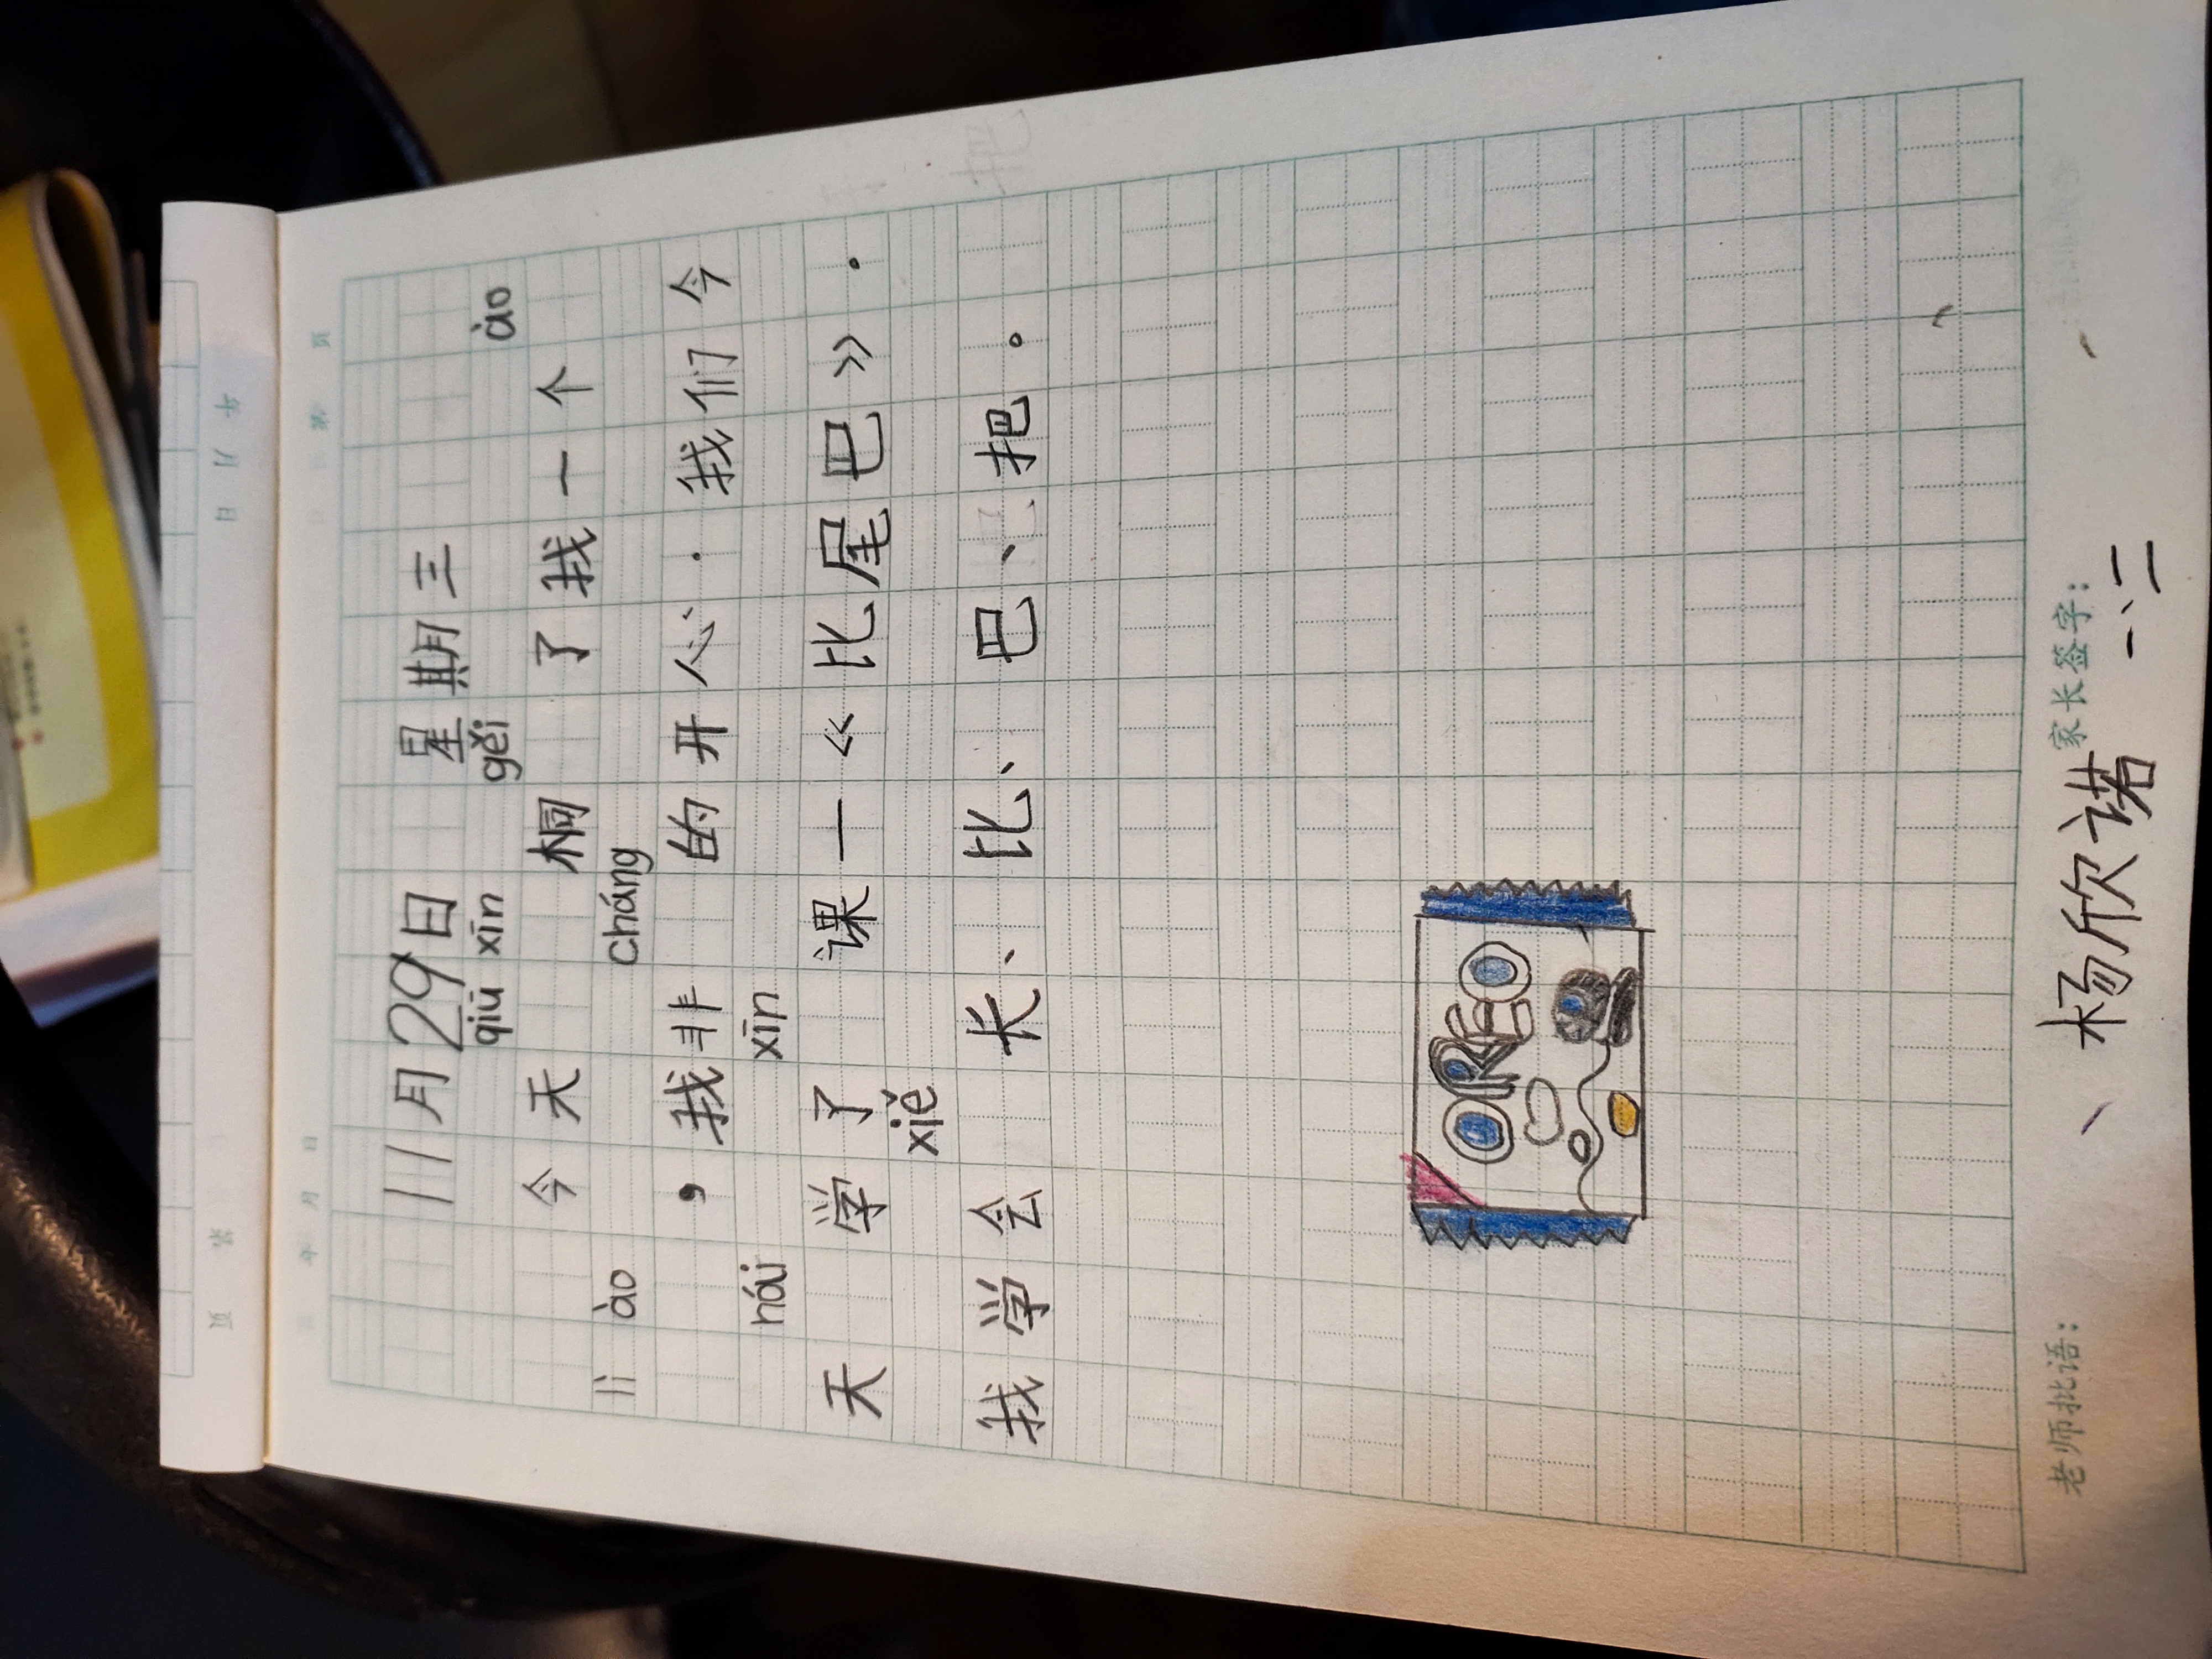 年 月 日 第 页
11月29日 星期三
qiū xīn gěi ào
今天 桐 了我一个
li ào cháng
，我非 的开心．我们今
nái xīn
天 学了 课一《比尾巴》．
xiě
我学会 长、比、巴、把。
OREO
老师批语： 家长签字：
杨欣诺 一、二